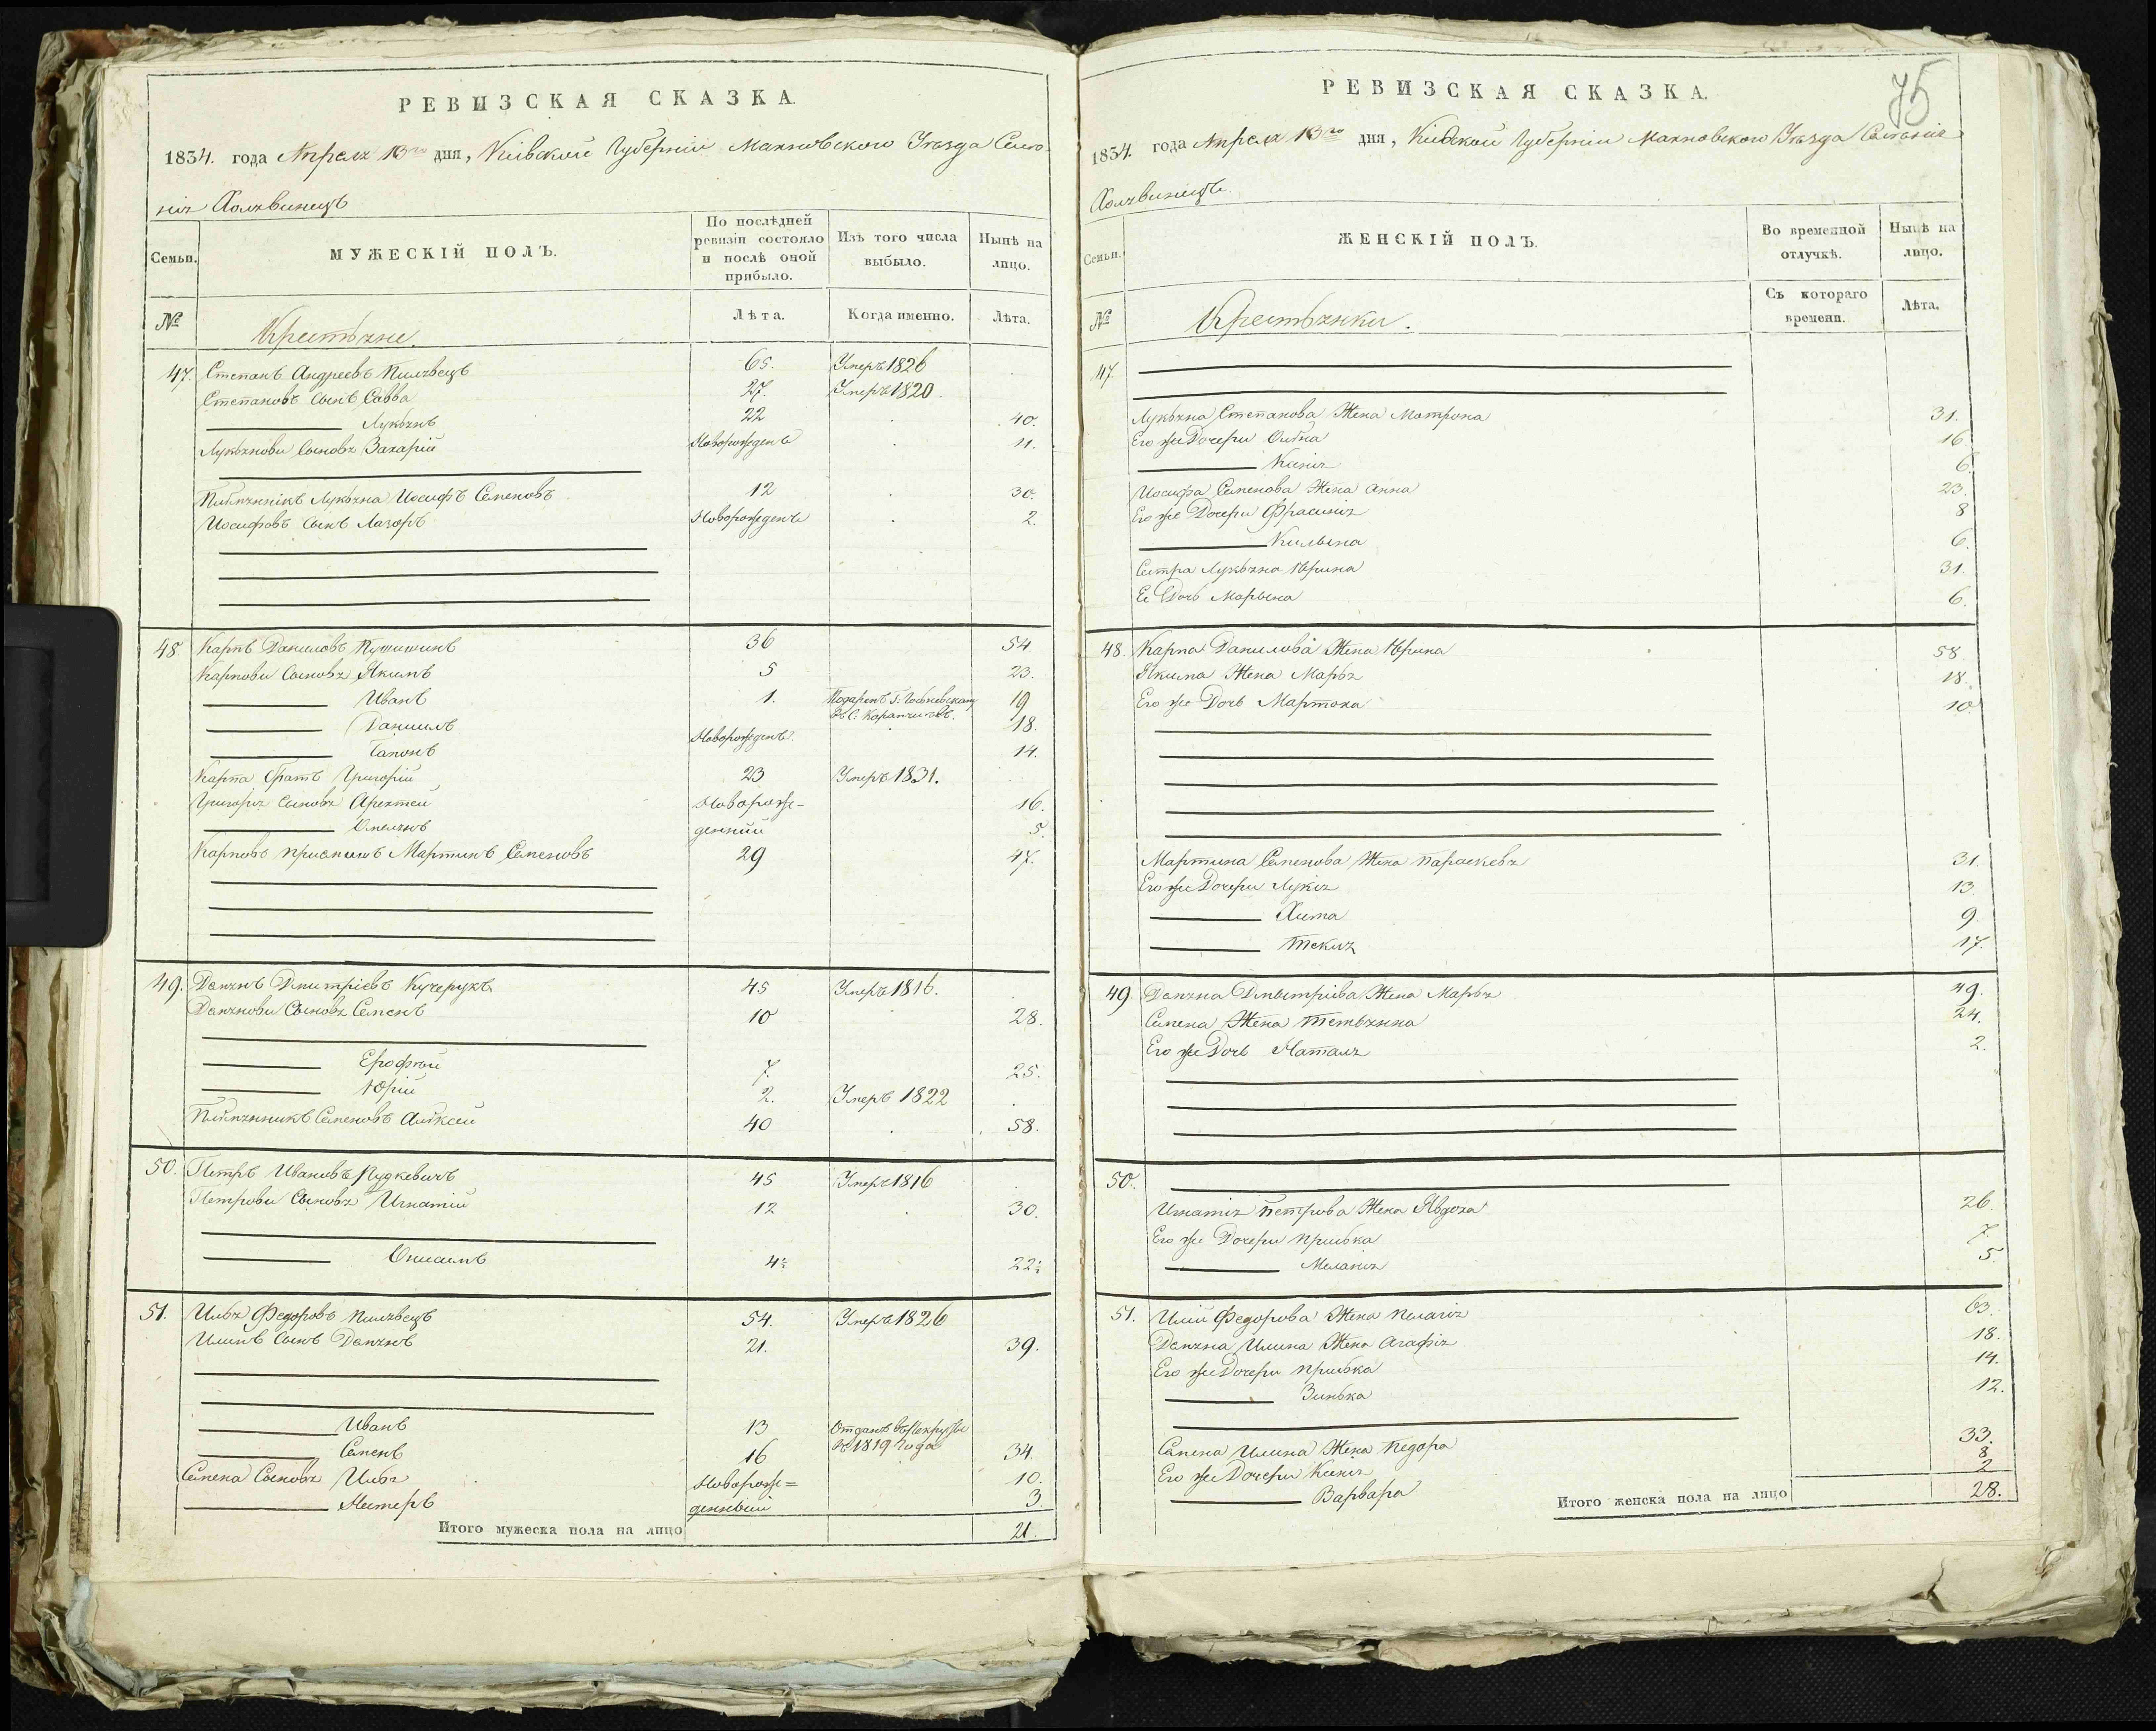 РЕВИЗСКАЯ СКАЗКА.
1834. года Апреля 13го дня, Кіевской Губерніи Махновского Уезда Селе-
нія Холявинецъ
Семьи.
МУЖЕСКІЙ ПОЛЪ.
По послѣдней ревизіи состояло и послѣ оной прибыло.
Изъ того числа выбыло.
Нынѣ на лицо.
№
Крестьяне.
Лѣта.
Когда именно.
Лѣта.
47. Степанъ Андреевъ Пилявецъ 65. Умеръ 1826
Степановъ Сынъ Савва 27. Умеръ 1820.
Лукьянъ 22 40.
Лукьянови Сыновя Захарій Новорожденъ 11.
Племянникъ Лукьяна Иосифъ Семеновъ 12 30.
Иосифовъ Сынъ Лазоръ Новорожденъ 2.
48 Карпъ Даниловъ 36 54
Карпови Сыновя Якимъ 5 23.
Иванъ 1. Подаренъ Г: 19
Въ С:
Даниилъ 18.
Новорожденъ.
Гапонъ 14.
Карпа братъ Григорій 23 Умеръ 1831.
Григоря Сыновя Арехтей Новорож- 16.
Омелянъ денній 5.
Карповъ Мартинъ Семеновъ 29 47.
49. Демянъ Дмитріевъ Кучерукъ 45 Умеръ 1816.
Демянови Сыновя Семенъ 10 28.
Ерофѣй 7. 25.
Юрій 2. Умеръ 1822
Племянникъ Семеновъ Алексей 40 58.
50. Петръ Ивановъ Рудкевичъ 45 Умеръ 1816
Петрови Сыновя Игнатій 12 30.
Онисимъ 4½ 22½
51. Илья Федоровъ Пилявецъ 54. Умеръ 1826
Илинъ Сынъ Демянъ 21. 39.
Иванъ 13 Отданъ въ Рекруты
въ 1819 Года
Семенъ 16 34.
Семена Сыновя Илья Новорож= 10.
Нестеръ денныи 3.
Итого мужеска пола на лицо 21.
75
РЕВИЗСКАЯ СКАЗКА.
1834. года Апреля 13го дня, Кіевской Губерніи Махновского Уезда Селенія
Холявинецъ
Семьи.
ЖЕНСКІЙ ПОЛЪ.
Во временной отлучкѣ.
Нынѣ на лицо.
№
Крестьянки.
Съ котораго времени.
Лѣта.
47.
Лукьяна Степанова Жена Матрона 31.
Его же Дочери Олена 16
Ксенія 6.
Иосифа Семенова Жена Анна 23.
Его же Дочери Фрасинія 8
Килына 6.
Сестра Лукьяна Юрина 31.
Ее Дочь Марьина 6.
48. Карпа Данилова Жена Юрина 58
Якима Жена Марья 18.
Его же Дочь Мартоха 10.
Мартина Семенова Жена Параскевя 31.
Его же Дочери Лукія 13
Хима 9.
Текля 17.
49. Демяна Дмытріева Жена Марья 49.
Семена Жена Тетьянна 24.
Его же Дочь Наталя 2.
50.
Игнатія Петрова Жена Явдоха 26.
Его же ДочериПриська 7.
Меланія 5.
51. Иліи Федорова Жена Пелагія 63.
Демяна Илина Жена Агафія 18.
Его же Дочери Приська 14.
Зинька 12.
Семена Илина Жена Педора 33.
Его же Дочери Ксенія 8
Варвара 2
Итого женска пола на лицо 28.